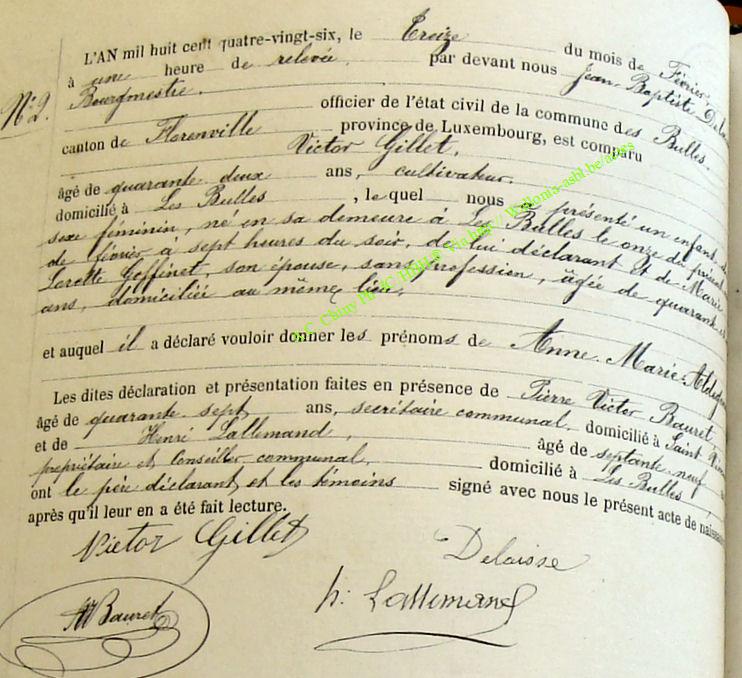 N° 2.
L'AN mil huit cent quatre-vingt-six, le treize du mois de Février,
à une heure de relevée, par devant nous Jean Baptiste
Bourgmestre.
officier de l'état civil de la commune des Bulles.
canton de Florenville province de Luxembourg, est comparu
Victor Gillet,
âgé de quarante deux ans, cultivateur,
domicilié à Les Bulles, lequel nous a présenté un enfant
sexe féminin, né en sa demeure à Les Bulles le onze du présent
de février à sept heures du soir, de lui déclarant et de Marie
Goffinet, son épouse, sans profession, âgée de quarante
ans, domiciliée au même lieu,
et auquel il a déclaré vouloir donner les prénoms de Anne-Marie-
Les dites déclaration et présentation faites en présence de Pierre Victor Bauret,
âgé de quarante sept ans, secrétaire communal, domicilié à Saint
et de Henri Lallemand, âgé de septante neuf
propriétaire et Conseiller communal, domicilié à Les Bulles,
ont le père déclarant et les témoins signé avec nous le présent acte de
après qu'il leur en a été fait lecture.
Victor Gillet
Delaisse
Bauret
h: Lallemand